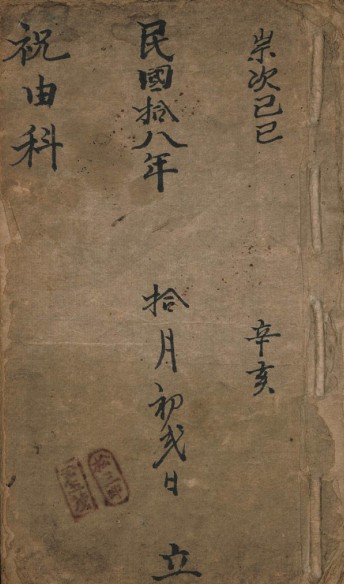 崇次己巳
辛亥
民國拾八年
拾月初弍日 立
祝由科